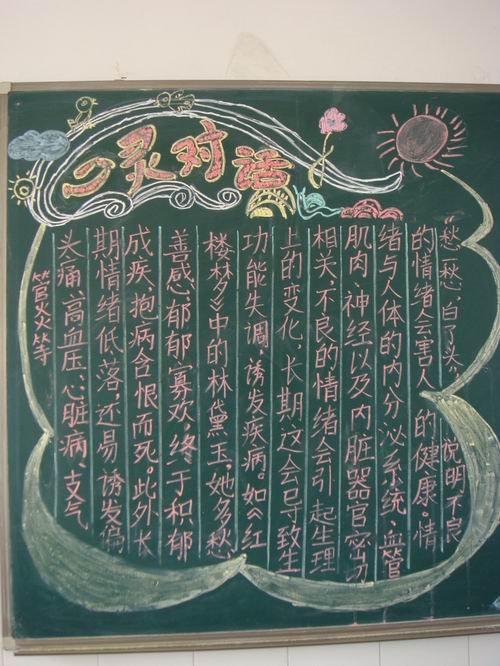 心灵对话
“愁一愁，白了头”，说明不良
的情绪会害人的健康。情
绪与人体的内分泌系统、血管
肌肉、神经以及内脏器官密切
相关，不良的情绪会引起生理
上的变化，长期这会导致生
功能失调，诱发疾病。如《红
楼梦》中的林黛玉，她多愁
善感，郁郁寡欢，终于积郁
成疾、抱病含恨而死。此外长
期情绪低落，还易诱发偏
头痛、高血压、心脏病、支气
管炎等